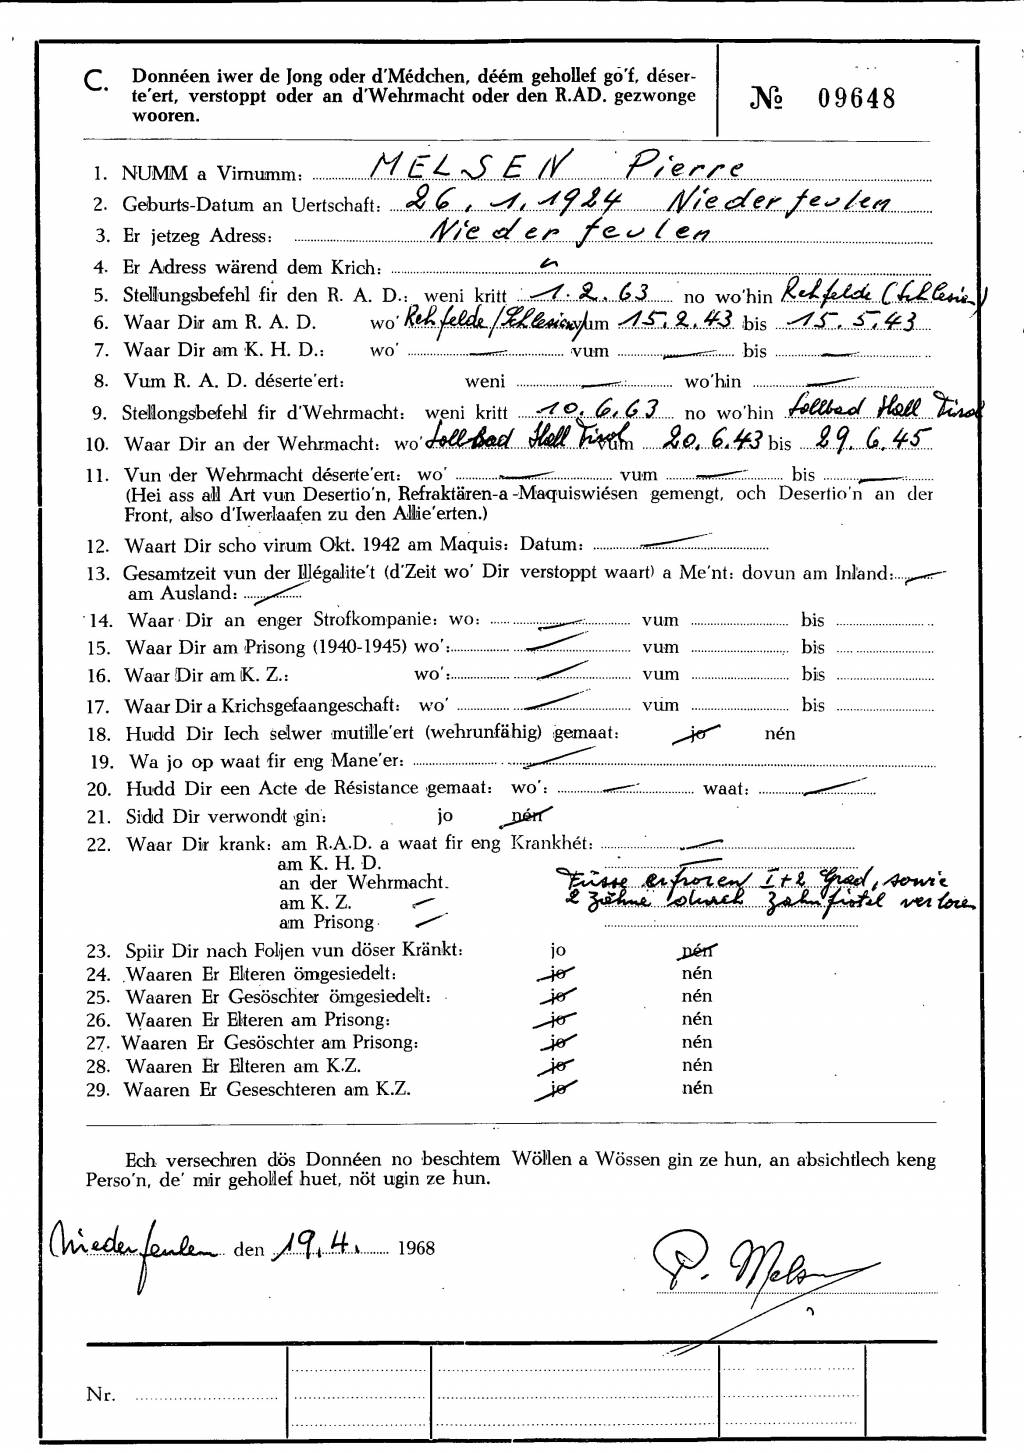 C. Donnéen iwer de Jong oder d'Médchen, déém gehollef gö'f, déser-
te'ert, verstoppt oder an d'Wehrmacht oder den R.AD. gezwonge
wooren.
№ 09648
1. NUMM a Virnumm: MELSEN Pierre
2. Geburts-Datum an Uertschaft: 26. 1. 1924 Niederfeulen
3. Er jetzeg Adress: Niederfeulen
4. Er Adress wärend dem Krich: "
5. Stellungsbefehl fir den R. A. D.: weni kritt 1. 2. 63 no wo'hin Rehfelde (Schlesien)
6. Waar Dir am R. A. D. wo' Rehfelde/Schlesien vum 15. 2. 43 bis 15. 5. 43
7. Waar Dir am K. H. D.: wo' — vum — bis —
8. Vum R. A. D. déserte'ert: weni — wo'hin —
9. Stellongsbefehl fir d'Wehrmacht: weni kritt 10. 6. 63 no wo'hin Sollbad Hall Tirol
10. Waar Dir an der Wehrmacht: wo' Sollbad Hall Tirol vum 20. 6. 43 bis 29. 6. 45
11. Vun der Wehrmacht déserte'ert: wo' — vum — bis —
(Hei ass all Art vun Desertio'n, Refraktären-a-Maquiswiésen gemengt, och Desertio'n an der
Front, also d'Iwerlaafen zu den Allie'erten.)
12. Waart Dir scho virum Okt. 1942 am Maquis: Datum: —
13. Gesamtzeit vun der Illégalite't (d'Zeit wo' Dir verstoppt waart) a Me'nt: dovun am Inland: —
am Ausland: —
14. Waar Dir an enger Strofkompanie: wo: — vum bis
15. Waar Dir am Prisong (1940-1945) wo': — vum bis
16. Waar Dir am K. Z.: wo': — vum bis
17. Waar Dir a Krichsgefaangeschaft: wo' — vum bis
18. Hudd Dir Iech selwer mutille'ert (wehrunfähig) gemaat: jo nén
19. Wa jo op waat fir eng Mane'er: —
20. Hudd Dir een Acte de Résistance gemaat: wo': — waat: —
21. Sidd Dir verwondt gin: jo nén
22. Waar Dir krank: am R.A.D. a waat fir eng Krankhét: —
am K. H. D. —
an der Wehrmacht. Füsse erfroren I+2 Grad, sowie
am K. Z. — 2 Zähne durch Zahnfistel verloren
am Prisong —
23. Spiir Dir nach Foljen vun döser Kränkt: jo nén
24. Waaren Er Elteren ömgesiedelt: jo nén
25. Waaren Er Gesöschter ömgesiedelt: jo nén
26. Waaren Er Elteren am Prisong: jo nén
27. Waaren Er Gesöschter am Prisong: jo nén
28. Waaren Er Elteren am K.Z. jo nén
29. Waaren Er Geseschteren am K.Z. jo nén
Ech versechren dös Donnéen no beschtem Wöllen a Wössen gin ze hun, an absichtlech keng
Perso'n, de' mir gehollef huet, nöt ugin ze hun.
Niederfeulen den 19. 4. 1968
P. Melsen
Nr.